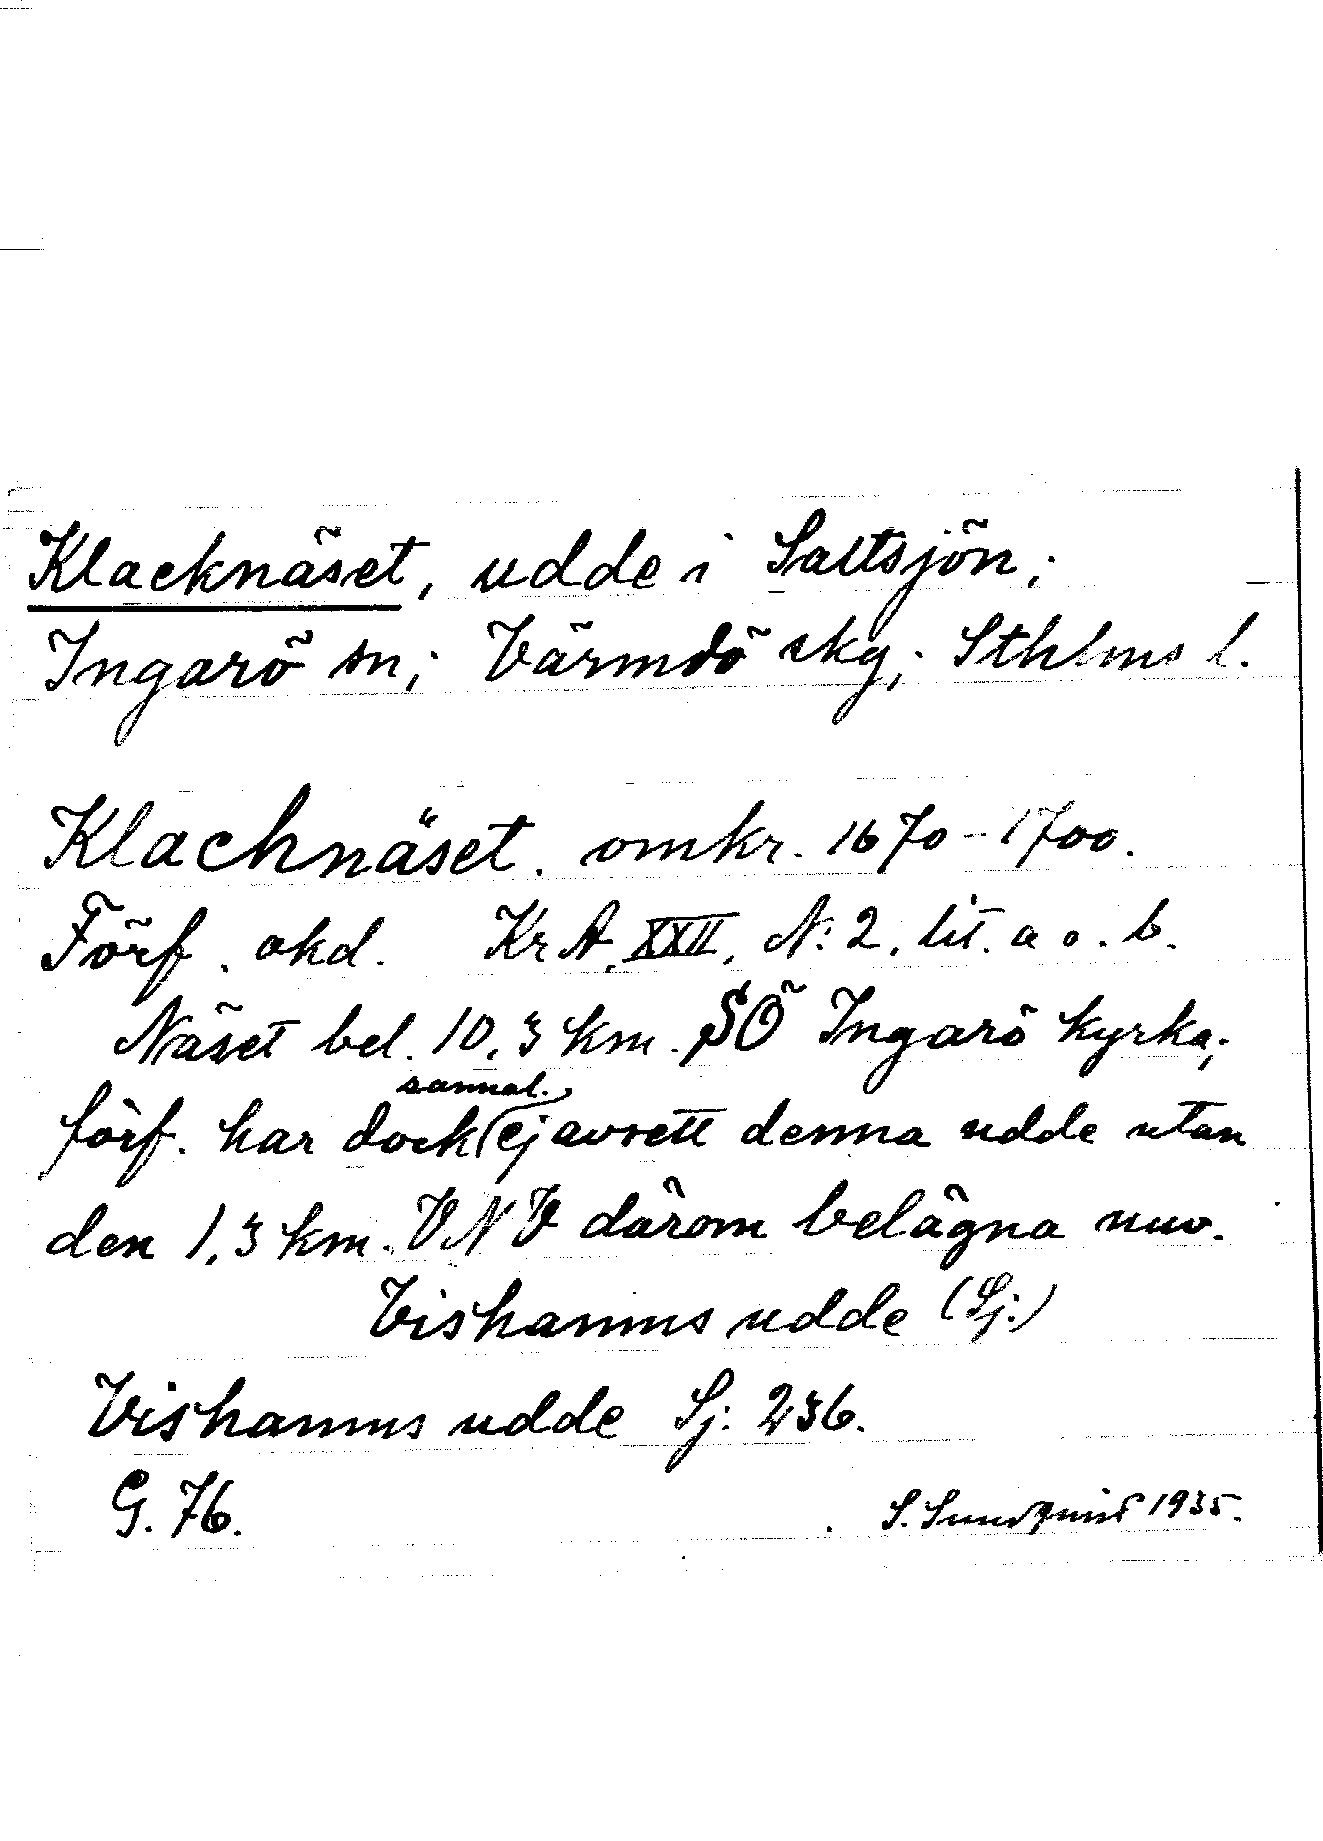 Klacknäset, udde i Saltsjön;
Ingarö sn; Värmdö skg; Sthlms l.
Klachnäset. omkr. 1670-1700.
Förf. okd. KrA, XXII, N:2, lit. a o. b.
Näset bel. 10,3 km. SÖ Ingarö kyrka;
förf. har dock sannol. ej avsett denna udde utan
den 1,3 km. VNV därom belägna nuv.
Vishamns udde (Sj.)
Vishamns udde Sj: 236.
G. 76. S. Sundquist 1935.